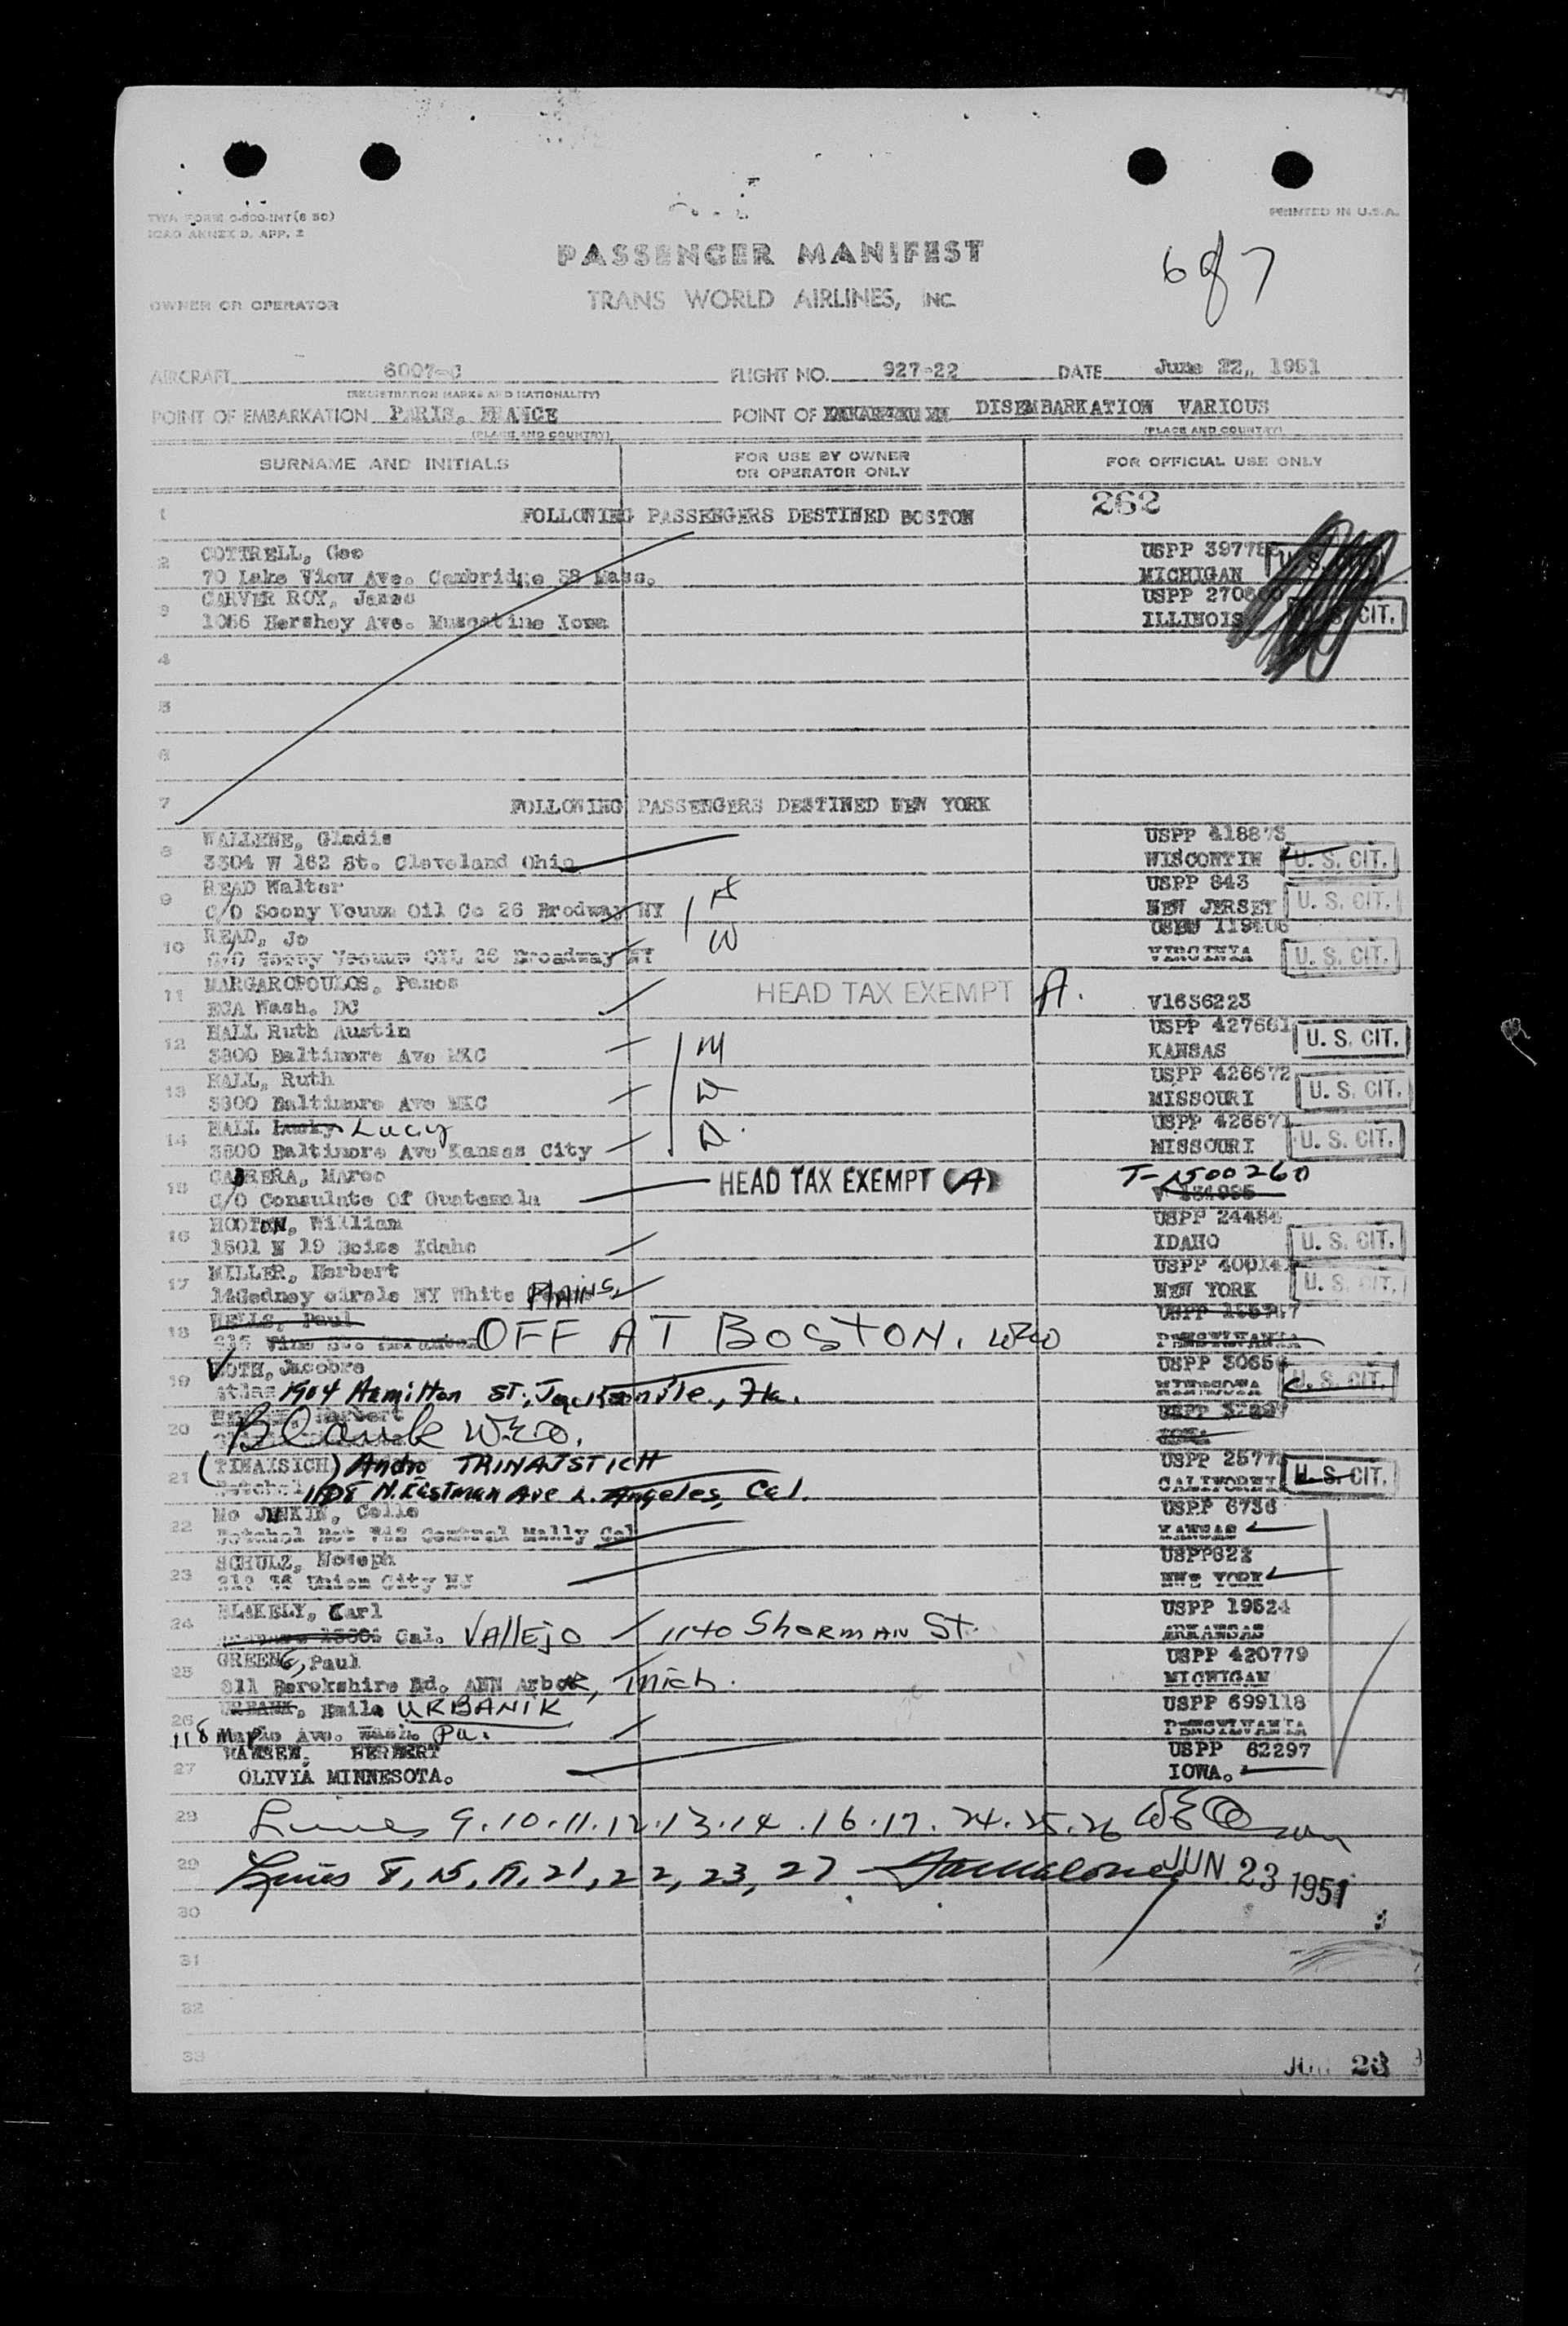 TWA FORM 0-600-INT (6 50)
ICAO ANNEX D. APP. 2
PRINTED IN U.S.A.
PASSENGER MANIFEST
687
TRANS WORLD AIRLINES, INC.
OWNER OR OPERATOR
AIRCRAFT 6007-C FLIGHT NO. 927-22 DATE June 22, 1951
(REGISTRATION MARKS AND NATIONALITY)
POINT OF EMBARKATION PARIS, FRANCE POINT OF DISEMBARKATION VARIOUS
(PLACE AND COUNTRY) (PLACE AND COUNTRY)
SURNAME AND INITIALS FOR USE BY OWNER OR OPERATOR ONLY FOR OFFICIAL USE ONLY
262
1 FOLLOWING PASSENGERS DESTINED BOSTON
2 COTTRELL, Geo USPP 39778
70 Lake View Ave. Cambridge 38 Mass. MICHIGAN U. S.
3 CARVER ROY, James USPP 2706
1056 Hershey Ave. Muscatine Iowa ILLINOIS U. S. CIT.
4
5
6
7 FOLLOWING PASSENGERS DESTINED NEW YORK
8 WALLENE, Gladis USPP 418873
3304 W 162 St. Cleveland Ohio WISCONTIN U. S. CIT.
9 READ Walter A USPP 843
C/O Socny Vouum Oil Co 26 Brodway NY NEW JERSEY U. S. CIT.
10 READ, Jo W 119406
C/O Socny Vacuum OIL 26 Broadway NY VIRGINIA U. S. CIT.
11 MARGAROPOULOS, Panos HEAD TAX EXEMPT A.
ECA Wash. DC V1636223
12 HALL Ruth Austin M USPP 427661
3800 Baltimore Ave MKC KANSAS U. S. CIT.
13 HALL, Ruth W USPP 426672
3800 Baltimore Ave MKC MISSOURI U. S. CIT.
14 HALL Lucy D. USPP 426671
3800 Baltimore Ave Kansas City MISSOURI U. S. CIT.
15 CABRERA, Marco HEAD TAX EXEMPT (A) T-1500260
C/O Consulate Of Guatemala
16 HOOTON, William USPP 24484
1501 N 19 Boise Idaho IDAHO U. S. CIT.
17 MILLER, Herbert USPP 40014
14Gedney circle NY White PLAINS NEW YORK U. S. CIT.
18 WELLS, Paul
OFF AT BOSTON. WEO PENSYLVANIA
19 ROTH, Jacobre USPP 3065
Atlas 1904 Hamilton ST; Jacksonville, Fla. MINNESOTA U. S. CIT.
20 Blank WEO.
21 (TINAISICH) Andro TRINAJSTICH USPP 2577
1108 N. Eastman Ave L. Angeles, Cal. CALIFORNI U. S. CIT.
22 Mc JUNKIN, Celle USPP 6736
KANSAS
23 SCHULZ, Hoseph USPP622
Union City NJ NWE YORK
24 BLAKELY, Carl USPP 19524
Cal. VALLEJO 1140 SHERMAN ST. ARKANSAS
25 GREENE, Paul USPP 420779
811 Berokshire Rd. ANN Arbor, Mich. MICHIGAN
26 Emile URBANIK USPP 699118
118 Maple Ave. Wash. Pa. PENSYLVANIA
27 HANSEN, HERBERT USPP 62297
OLIVIA MINNESOTA. IOWA.
28 Lines 9.10.11.12.13.14.16.17.24.25.26 WEO
29 Lines 8, 15, 19, 21, 22, 23, 27 JUN 23 1951
30
31
32
33
JUN 23